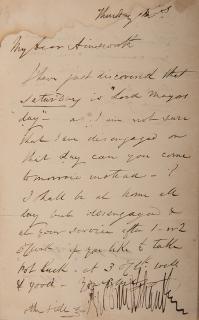 Thursday
My dear Ainsworth
I have just discovered that
Saturday is "Lord Mayors
day" — & I am not sure
that I am disengaged on
that day. can you come
tomorrow instead — ?
I shall be at home all
day but disengaged &
at your service after 1 or 2
if you like to take
Pot luck — at 3 well
& good —
other side